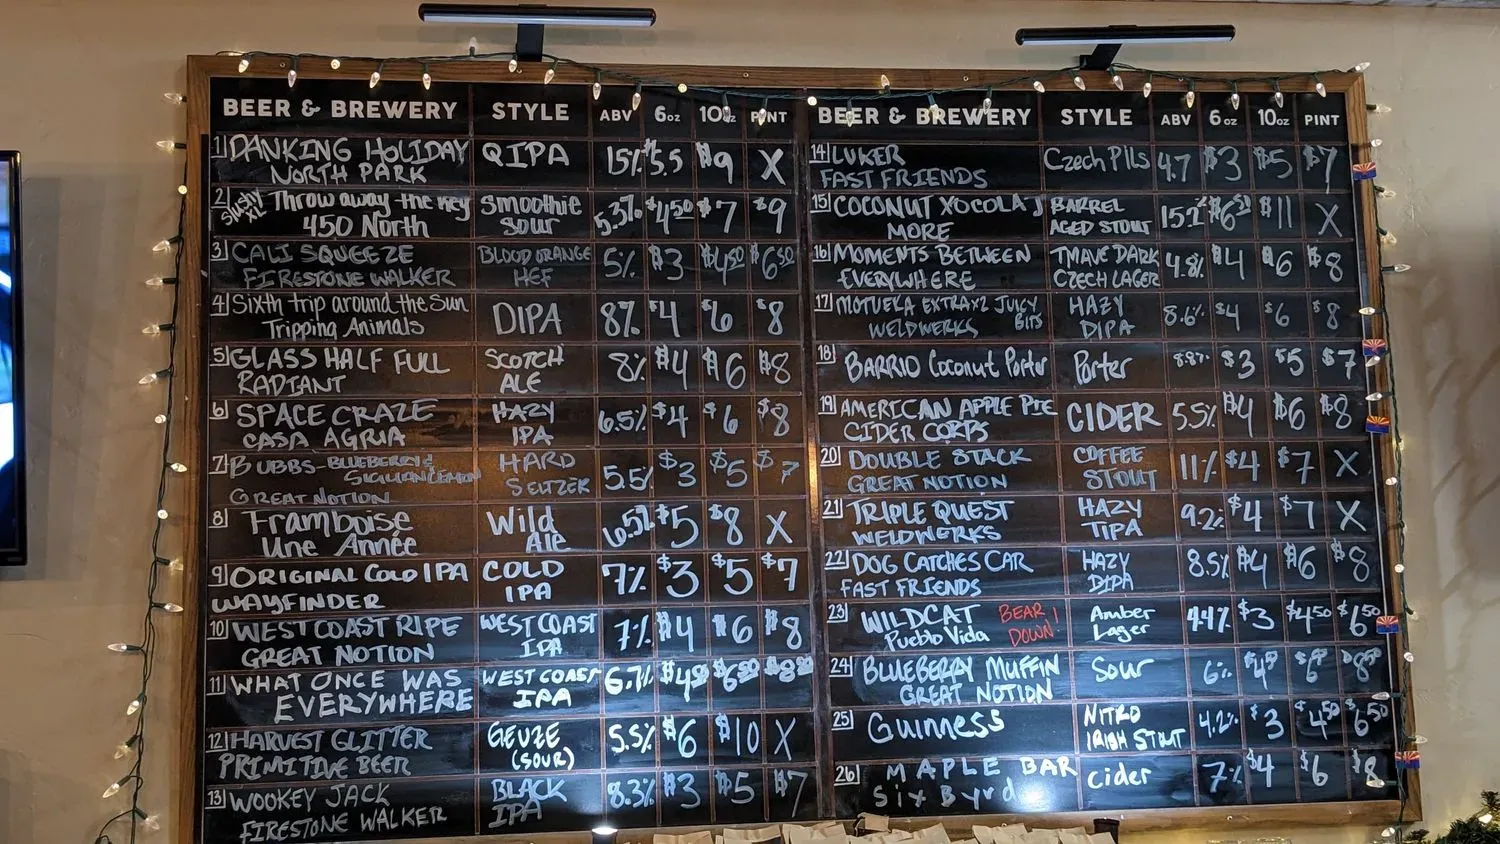 BEER & BREWERY STYLE ABV 6oz 10oz PINT
1 DANKING HOLIDAY QIPA 15% $5.5 $9 X
NORTH PARK
2 Slushy XL Throw away the key Smoothie 5.3% $4.50 $7 $9
450 North Sour
3 CALI SQUEEZE BLOOD ORANGE 5% $3 $4.50 $6.50
FIRESTONE WALKER HEF
4 Sixth trip around the Sun DIPA 8% $4 $6 $8
Tripping Animals
5 GLASS HALF FULL SCOTCH 8% $4 $6 $8
RADIANT ALE
6 SPACE CRAZE HAZY 6.5% $4 $6 $8
CASA AGRIA IPA
7 BUBBS-BLUEBERRY & HARD 5.5% $3 $5 $7
SICILIAN LEMON SELTZER
GREAT NOTION
8 Framboise Wild 6.5% $5 $8 X
Une Année Ale
9 ORIGINAL COLD IPA COLD 7% $3 $5 $7
WAYFINDER IPA
10 WEST COAST RIPE WEST COAST 7% $4 $6 $8
GREAT NOTION IPA
11 WHAT ONCE WAS WEST COAST 6.7% $4.50 $6.50 $8.50
EVERYWHERE IPA
12 HARVEST GLITTER GEUZE 5.5% $6 $10 X
PRIMITIVE BEER (SOUR)
13 WOOKEY JACK BLACK 8.3% $3 $5 $7
FIRESTONE WALKER IPA
BEER & BREWERY STYLE ABV 6oz 10oz PINT
14 LUKER Czech Pils 4.7 $3 $5 $7
FAST FRIENDS
15 COCONUT XOCOLA BARREL 15.2% $6.50 $11 X
MORE AGED STOUT
16 MOMENTS BETWEEN TMAVE DARK 4.8% $4 $6 $8
EVERYWHERE CZECH LAGER
17 MOTUEKA EXTRA x2 JUICY BITS HAZY 8.6% $4 $6 $8
WELDWERKS DIPA
18 BARRIO Coconut Porter Porter $3 $5 $7
19 AMERICAN APPLE PIE CIDER 5.5% $4 $6 $8
CIDER CORPS
20 DOUBLE STACK COFFEE 11% $4 $7 X
GREAT NOTION STOUT
21 TRIPLE QUEST HAZY 9.2% $4 $7 X
WELDWERKS TIPA
22 DOG CATCHES CAR HAZY 8.5% $4 $6 $8
FAST FRIENDS DIPA
23 WILDCAT BEAR Amber 4.4% $3 $4.50 $6.50
Pueblo Vida DOWN! Lager
24 BLUEBERRY MUFFIN Sour 6% $4.50 $6 $8
GREAT NOTION
25 Guinness NITRO 4.2% $3 $4.50 $6.50
IRISH STOUT
26 MAPLE BAR cider 7% $4 $6 $8
Six Byrd